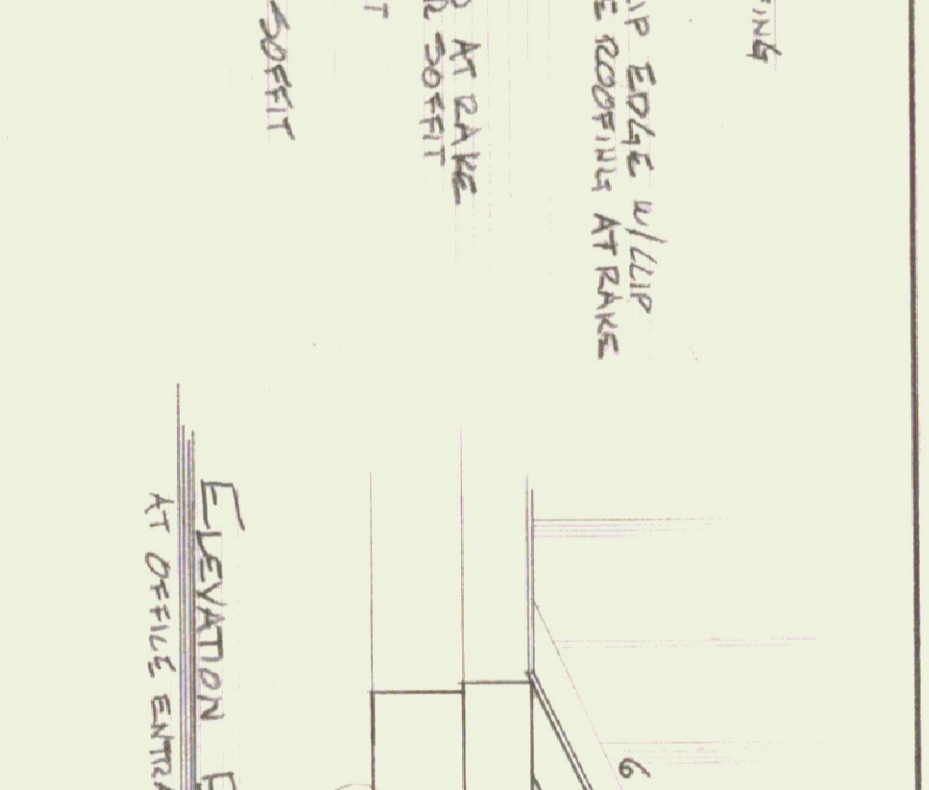 ING
IP EDGE W/CLIP
E ROOFING AT RAKE
AT RAKE
R SOFFIT
T
SOFFIT
6
ELEVATION
AT OFFICE ENTRA